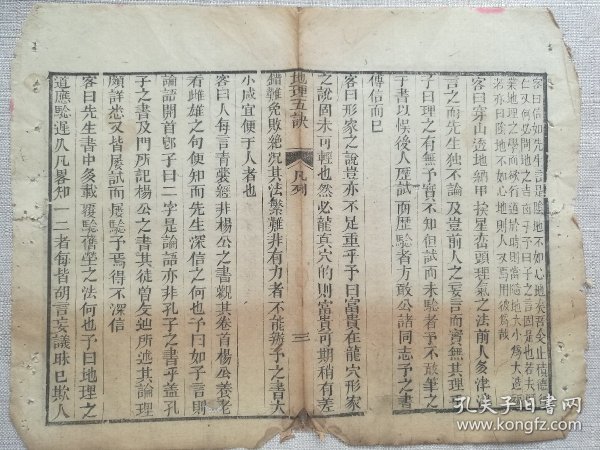 客曰信如先生言是陰地不如心地矣吾人止積德行
仁又何必問地之吉凶乎予曰子之言固是也若夫
業地理之學而欲行道於時則當隨地大小為大造福
若亦曰陰地不如心地則人又焉用彼為哉
客曰穿山透地納甲挨星杳頭理氣之法前人多津津
言之而先生獨不論及豈前人之妄言而實無其理乎
予曰理之有無予實不知但試而未驗者予不敢筆之
于書以悞後人歷試而歷驗者方敢公諸同志予之書
傳信而已
客曰形家之說豈亦不足重乎予曰富貴在龍穴形家
之說固未可輕也然必龍真穴的則富貴可期稍有差
錯難免敗絕况其法繁難非有力者不能務予之書大
小咸宜便于人者也
地理五訣
凡例
三
客曰人每言青囊經非楊公之書觀其卷首楊公養老
看雌雄之句便知而先生深信之何也予曰如子言則
論語開首即子曰二字是論語亦非孔子之書乎蓋孔
子之書及門所記楊公之書其徒曾文辿所述其論理
頗詳悉又皆屢試而屢驗予焉得不深信
客曰先生書中多載覆驗舊塋之法何也予曰地理之
道應驗遲久凡畧知一二者每皆胡言妄議昧己欺人
孔夫子旧书网
www.kongfz.com